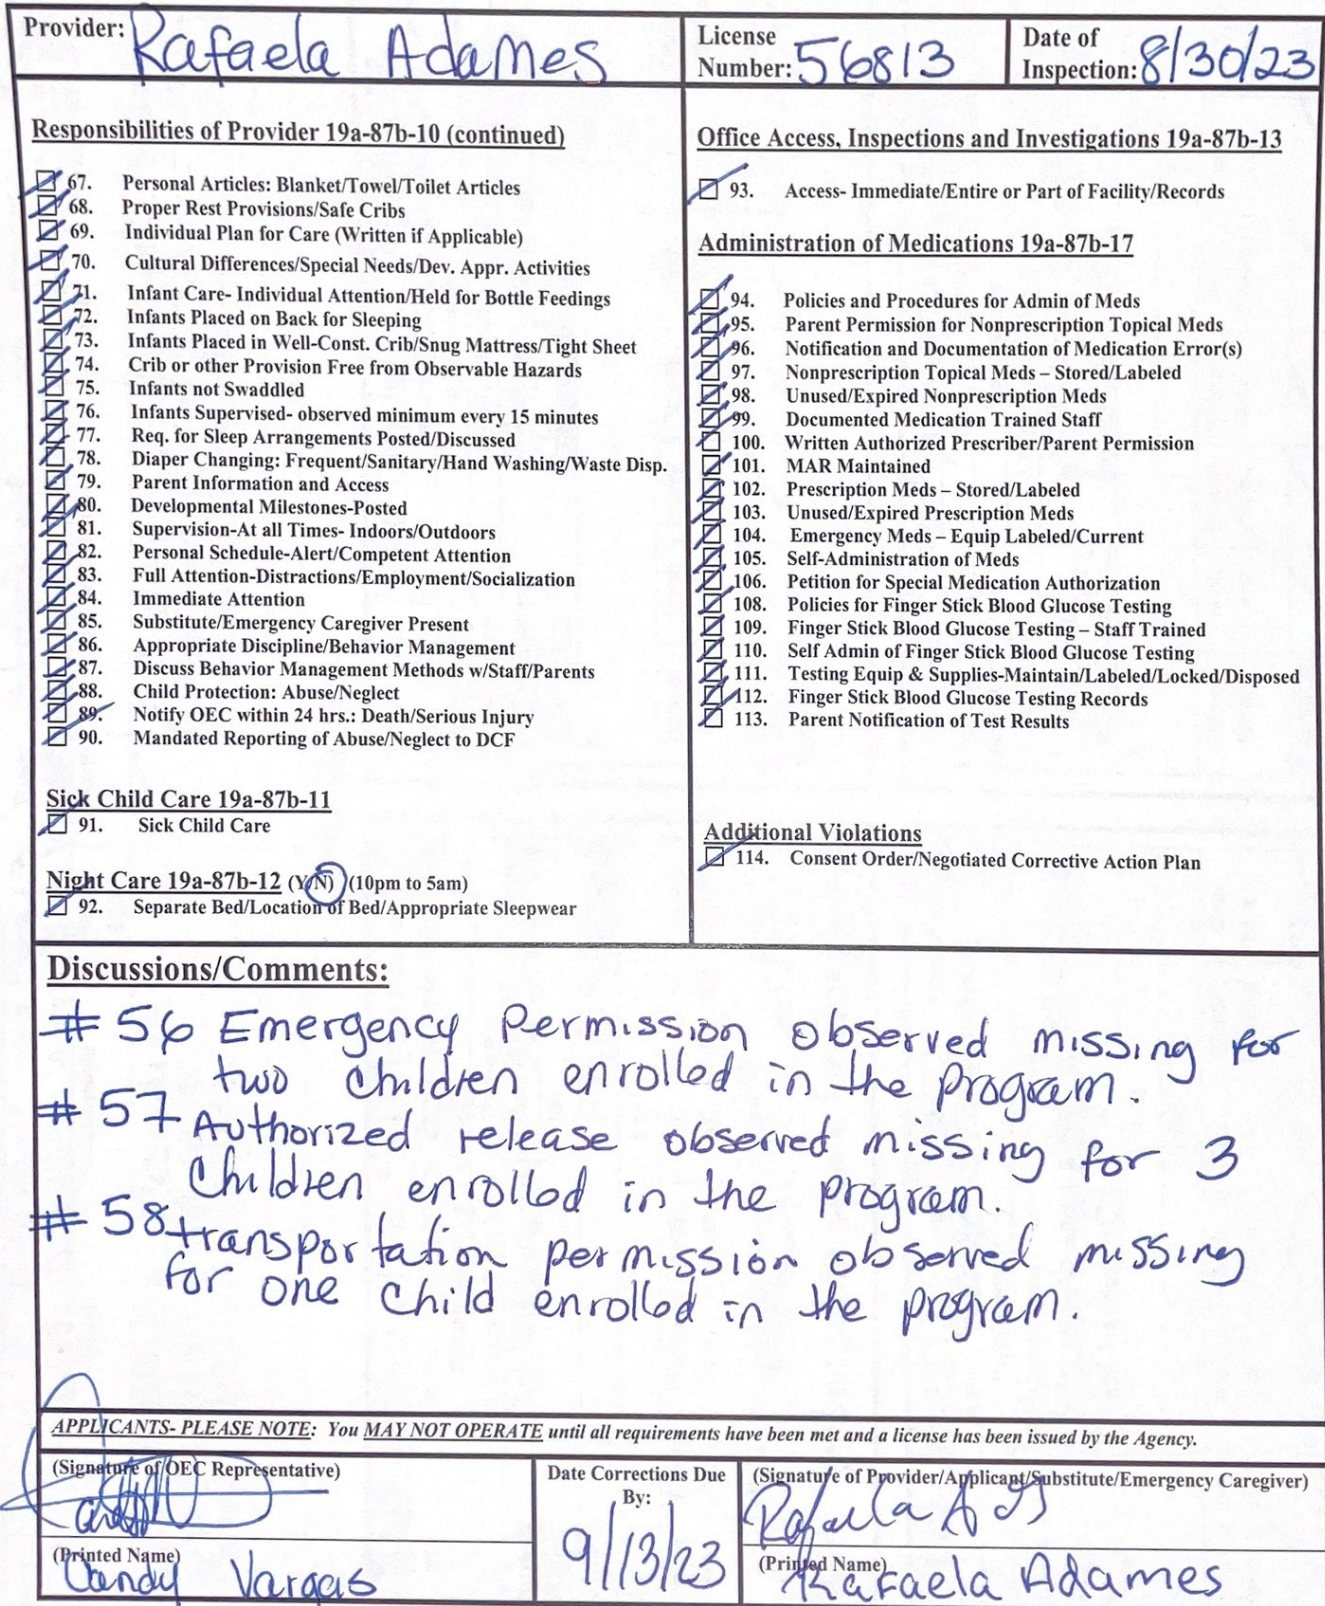 Provider: Rafaela Adames
License Number: 56813
Date of Inspection: 8/30/23
Responsibilities of Provider 19a-87b-10 (continued)
67. Personal Articles: Blanket/Towel/Toilet Articles
68. Proper Rest Provisions/Safe Cribs
69. Individual Plan for Care (Written if Applicable)
70. Cultural Differences/Special Needs/Dev. Appr. Activities
71. Infant Care- Individual Attention/Held for Bottle Feedings
72. Infants Placed on Back for Sleeping
73. Infants Placed in Well-Const. Crib/Snug Mattress/Tight Sheet
74. Crib or other Provision Free from Observable Hazards
75. Infants not Swaddled
76. Infants Supervised- observed minimum every 15 minutes
77. Req. for Sleep Arrangements Posted/Discussed
78. Diaper Changing: Frequent/Sanitary/Hand Washing/Waste Disp.
79. Parent Information and Access
80. Developmental Milestones-Posted
81. Supervision-At all Times- Indoors/Outdoors
82. Personal Schedule-Alert/Competent Attention
83. Full Attention-Distractions/Employment/Socialization
84. Immediate Attention
85. Substitute/Emergency Caregiver Present
86. Appropriate Discipline/Behavior Management
87. Discuss Behavior Management Methods w/Staff/Parents
88. Child Protection: Abuse/Neglect
89. Notify OEC within 24 hrs.: Death/Serious Injury
90. Mandated Reporting of Abuse/Neglect to DCF
Sick Child Care 19a-87b-11
91. Sick Child Care
Night Care 19a-87b-12 (Y/N) (10pm to 5am)
92. Separate Bed/Location of Bed/Appropriate Sleepwear
Office Access, Inspections and Investigations 19a-87b-13
93. Access- Immediate/Entire or Part of Facility/Records
Administration of Medications 19a-87b-17
94. Policies and Procedures for Admin of Meds
95. Parent Permission for Nonprescription Topical Meds
96. Notification and Documentation of Medication Error(s)
97. Nonprescription Topical Meds – Stored/Labeled
98. Unused/Expired Nonprescription Meds
99. Documented Medication Trained Staff
100. Written Authorized Prescriber/Parent Permission
101. MAR Maintained
102. Prescription Meds – Stored/Labeled
103. Unused/Expired Prescription Meds
104. Emergency Meds – Equip Labeled/Current
105. Self-Administration of Meds
106. Petition for Special Medication Authorization
108. Policies for Finger Stick Blood Glucose Testing
109. Finger Stick Blood Glucose Testing – Staff Trained
110. Self Admin of Finger Stick Blood Glucose Testing
111. Testing Equip & Supplies-Maintain/Labeled/Locked/Disposed
112. Finger Stick Blood Glucose Testing Records
113. Parent Notification of Test Results
Additional Violations
114. Consent Order/Negotiated Corrective Action Plan
Discussions/Comments:
# 56 Emergency Permission observed missing for
two children enrolled in the program.
# 57 Authorized release observed missing for 3
children enrolled in the program.
# 58 transportation permission observed missing
for one child enrolled in the program.
APPLICANTS- PLEASE NOTE: You MAY NOT OPERATE until all requirements have been met and a license has been issued by the Agency.
(Signature of OEC Representative)
(Printed Name)
Vargas
Date Corrections Due
By:
9/13/23
(Signature of Provider/Applicant/Substitute/Emergency Caregiver)
Rafaela
(Printed Name)
Rafaela Adames